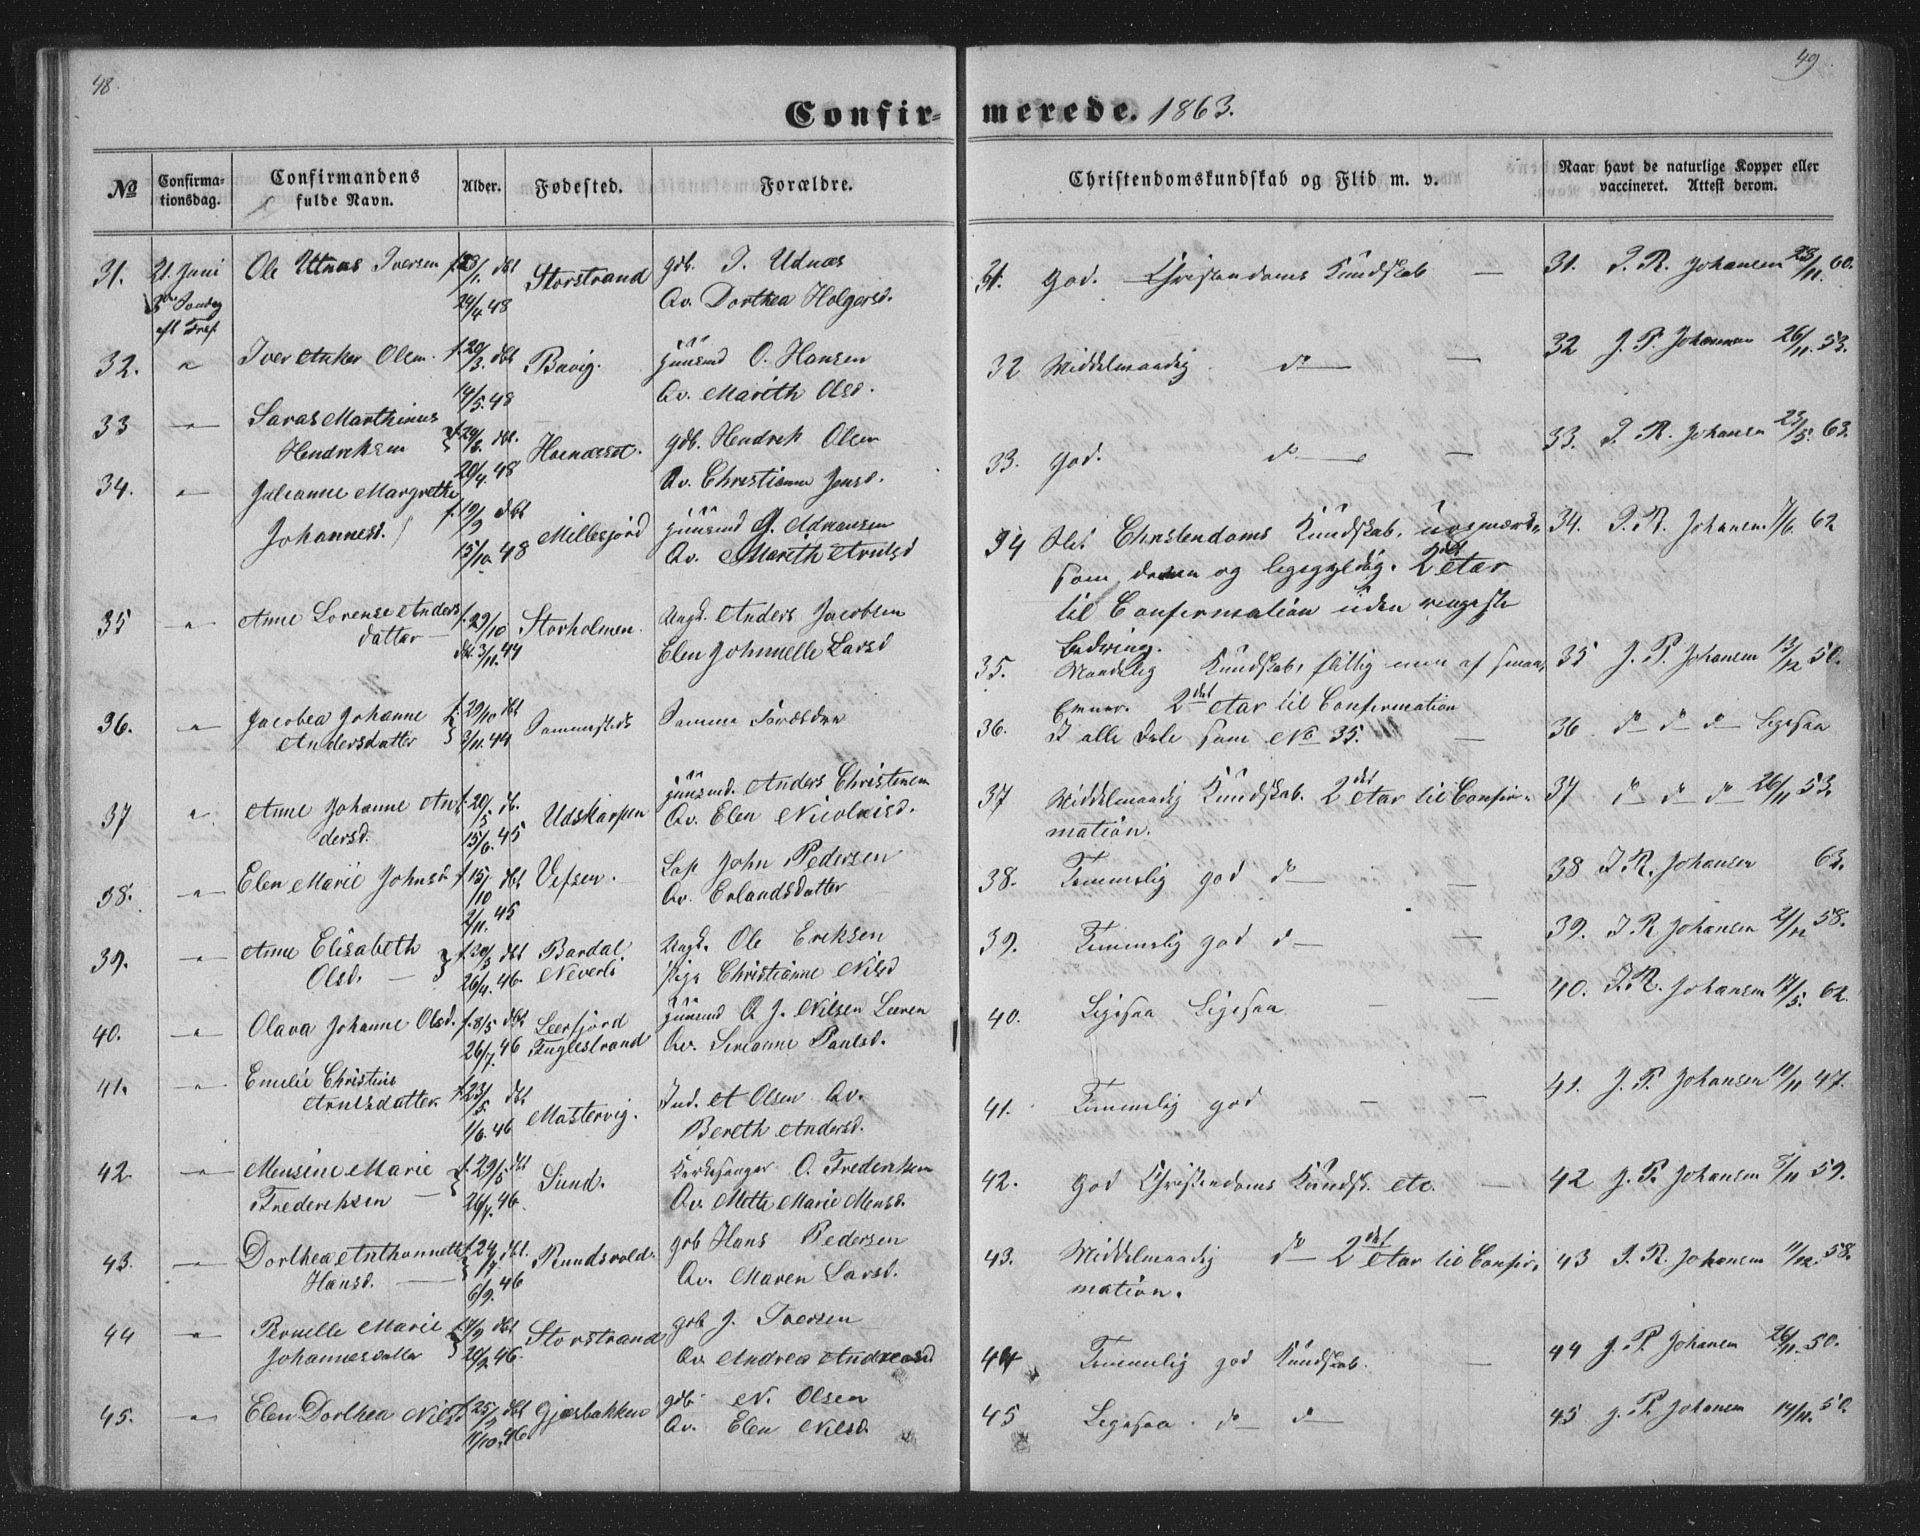 48.
49.
Confirmerede. 1863.
No
Confirmationsdag.
Confirmandens fulde Navn.
Alder.
Fødested.
Forældre.
Christendomskundskab og Flid m. v.
Naar havt de naturlige Kopper eller vaccineret. Attest derom.
31. 21. Juni Ole Utnæs Iversen Storstrand gdb. I. Udnæs
24/4 48 Qv. Dorthea Holgersd.
31. god. Christendoms Kundskab —
31. I. R. Johansen 23/11. 60.
32. " Iver Anker Olsen f. 20/3. dbt Bavig. Huusmd O. Hansen
14/5. 48 Qv. Marith Olsd.
32 Middelmaadig. do —
32 J. P. Johansen 26/11. 53.
33 " Saras Marthinus
Hendriksen dbt. gdb. Hendrik Olsen
20/4. 48 Qv. Christianna Jensd.
33. god. do —
33. I. R. Johansen 23/5. 63.
34. " Julianne Margrethe
Johannesd. f. 19/9 dbt Millesjord Huusmd J. Adriansen
15/10. 48 Qv. Marith Arntsd
34 Slet Christendoms Kundskab, uopmærk-
som, doven og ligegyldig. 2det Aar
til Confirmation uden ringeste
Bedring.
34. I. R. Johansen 7/6. 62
35 " Anne Lorense Anders
datter — f. 29/10 Storholmen. Ungk. Anders Jacobsen
dbt. 3/11. 44 Elen Johnnelle Larsd
35. Maadelig Kundskab, flittig men af smaa
Evner. 2det Aar til Confirmation
35 J. P. Johansen 13/12 50.
36. " Jacobea Johanne
Andersdatter f. 29/10 dbt 3/11. 44 Sammesteds Samme Forældre
36. I alle Dele som No 35. —
36 do do do Ligesaa
37 " Anne Johanne An-
dersd. f. 20/5 db. 15/6. 45 Udskarpen Huusmd. Anders Christensen
Qv. Elen Nicolaisd.
37 Middelmaadig Kundskab. 2det Aar til Confir-
mation.
37 do do do 26/11 53.
38. " Elen Marie Johnsd f. 15/10 dbt 2/11. 45 Vefsen. Lap John Pedersen
Qv. Erlandsdatter
38. Temmelig god do — —
38 I. R. Johansen 63.
39. " Anne Elisabeth
Olsd. — f. 20/3 dbt 26/4. 46. Bardal Neverli Ungk. Ole Eriksen
Pige Christianne Nilsd
39. Temmelig god do — —
39. I R Johansen 2/12 58.
40. " Olava Johanne Olsd. f. 8/5 dbt 26/7. 46 Leerfjord Fuglestrand Huusmd O J. Nilsen Leeren
Qv. Sirianne Paulsd.
40. Ligesaa Ligesaa — —
40. I. R. Johansen 17/5. 62.
41. " Emelie Christine
Arntsdatter f. 23/5 dbt 1/6. 46 Mastervig. Ind. A Olsen Qv.
Bereth Andersd.
41. Temmelig god — —
41. J. P. Johansen 47.
42. " Mensine Marie
Frederiksen — f. 29/5 dbt 26/7. 46. Sund. Kirkesanger O. Frederiksen
Qv. Mette Marie Mensd.
42. god Christendoms Kundsk. etc. —
42 J. P. Johansen 59.
43. " Dorthea Anthonnette
Hansd. — f. 24/7 dbt. 6/9. 46 Rundsvold. gdb Hans Pedersen
Qv. Maren Larsd.
43. Middelmaadig do 2det Aar til Confir-
mation.
43 I. R. Johansen 11/12. 58.
44 " Pernelle Marie
Johannesdatter dbt 46. Storstrand gdb J. Iversen
Qv. Andrea Andreasd
44 Temmelig god Kundskab. —
44 J. P. Johansen 26/11. 50.
45. " Elen Dorthea Nilsd f. 25/9 dbt 11/10. 46 Gjæsbakken gdb. N. Olsen
Qv. Elen Nilsd.
45 Ligesaa. do do
45 J. P. Johansen 14/11. 50.